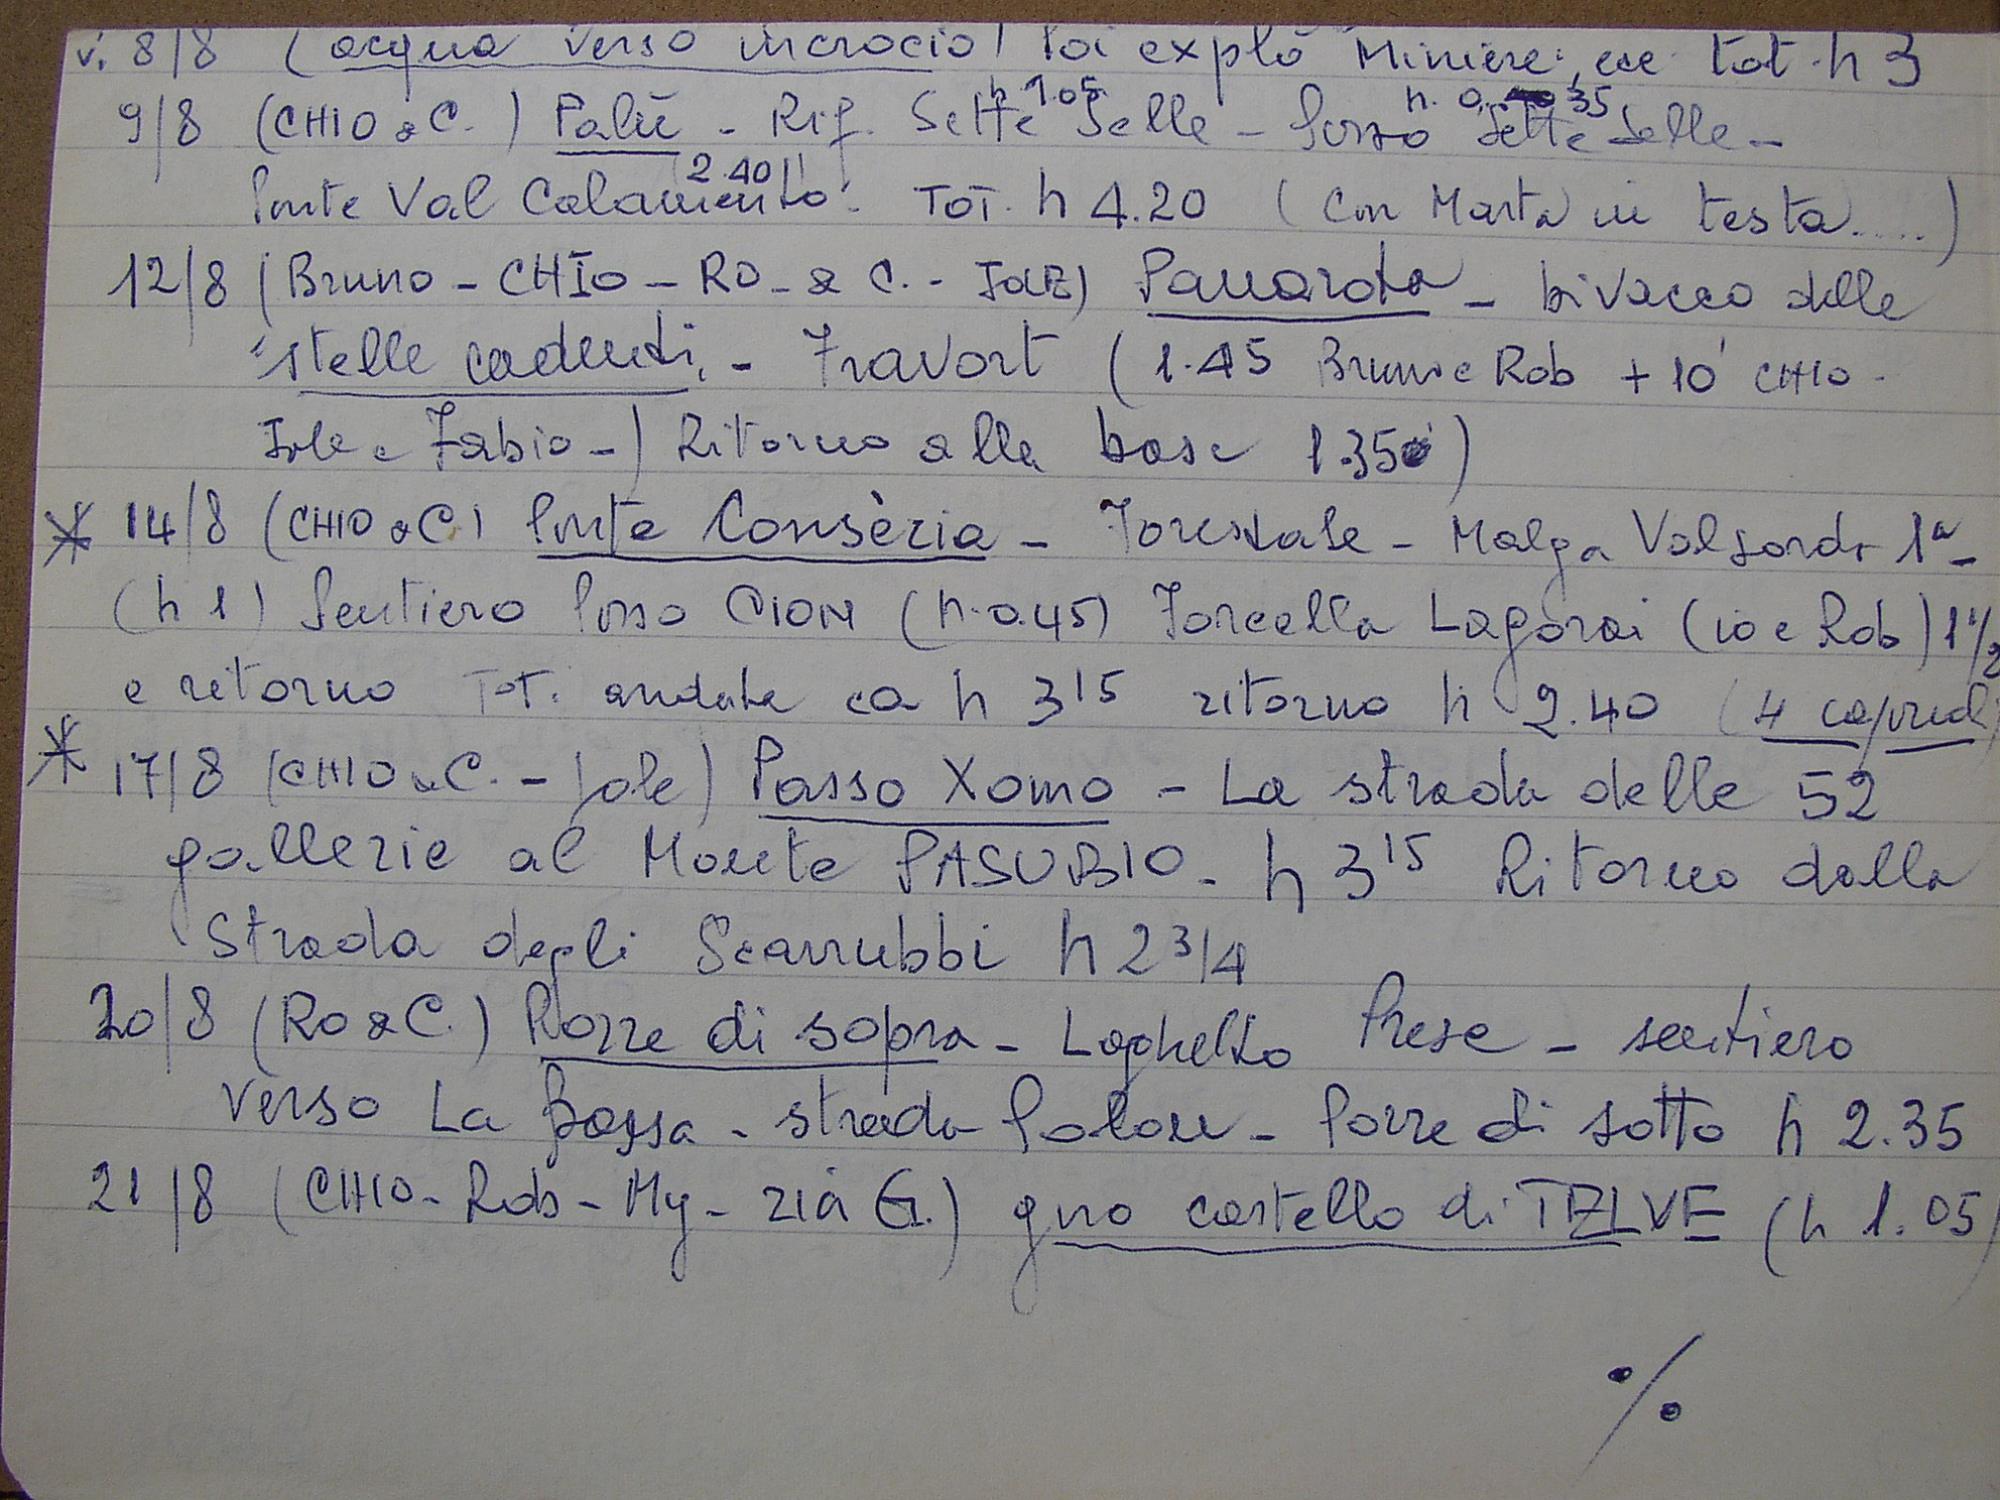 v. 8/8 (acqua verso incrocio) Poi explo Miniere, ecc tot. h 3
9/8 (CHIO & C.) Palù - Rif. Sette Selle - Passo Sette Selle -
h 1.05 h. 0. 35
Ponte Val Calamento. TOT. h 4.20 (con Marta in testa....)
2.40'
12/8 (Bruno - CHIO - RO - & C. - ) Panarota - bivacco delle
stelle cadenti - Fravort (1.45 Bruno e Rob + 10' CHIO -
Iole e Fabio -) Ritorno alla base 1.35)
* 14/8 (CHIO & C) Ponte Consèria - Forestale - Malga Valsorda 1ª -
(h 1) Sentiero Passo CION (h. 0.45) Forcella Lagorai (io e Rob) 1 1/2
e ritorno TOT. andata ca h 3 15 ritorno h 2.40 (4 caprioli)
* 17/8 (CHIO & C. - Jole) Passo Xomo - La strada delle 52
gallerie al Monte PASUBIO - h 3 15 Ritorno dalla
Strada degli Scarrubbi h 2 3/4
20/8 (RO & C.) Rorre di sopra - Laghetto Prese - sentiero
verso La Bassa - strada - di sotto h 2.35
21/8 (CHIO - Rob - My - zia G.) giro castello di TELVE (h 1.05)
%